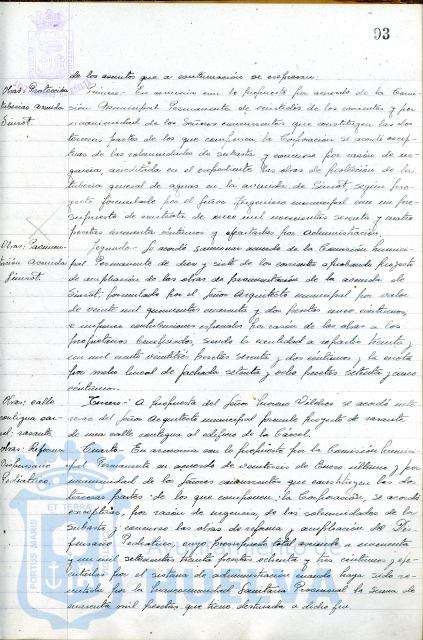 93
de los asuntos que a continuación se expresan.
Obras: Protección
tuberías avenida
Simot.
Primero.- En armonía con lo propuesto por acuerdo de la Comi-
sión Municipal Permanente de veintidós de los corrientes y por
unanimidad de los Señores concurrentes que constituyen las dos
terceras partes de los que componen la Corporación se acordó excep-
tuar de las solemnidades de subasta y concurso por razón de ur-
gencia, acreditada en el expediente las obras de protección de la
tubería general de aguas en la avenida de Simot, según pro-
yecto formulado por el Señor Ingeniero municipal con un pre-
supuesto de contrata de once mil novecientas sesenta y cuatro
pesetas cuarenta céntimos y ejecutarlas por Administración.
Obras: Pavimen-
tación avenida
Simot.
Segundo.- Se acordó sancionar acuerdo de la Comisión Munici-
pal Permanente de diez y siete de los corrientes aprobando proyecto
de ampliación de las obras de pavimentación de la avenida de
Simot, formulado por el Señor Arquitecto municipal por valor
de veinte mil quinientas cuarenta y dos pesetas cinco céntimos,
e imponer contribuciones especiales por razón de las obras a los
propietarios beneficiados, siendo la cantidad a repartir treinta y
un mil veintitrés pesetas sesenta y dos céntimos y la cuota
por metro lineal de fachada setenta y ocho pesetas setenta y cinco
céntimos.
Obras: calle
contigua car-
cel; rasante
Tercero.- A propuesta del Señor se acordó inte-
resar del Señor Arquitecto municipal formule proyecto de rasante
de una calle contigua al edificio de la Cárcel.
Obras: Reforma
Dispensario
Pediátrico.
Cuarto.- En armonía con lo propuesto por la Comisión Munici-
pal Permanente en acuerdo de veintiséis de Enero último y por
unanimidad de los Señores concurrentes que constituyen las dos
terceras partes de los que componen la Corporación, se acordó
exceptuar, por razón de urgencia, de las solemnidades de
subasta y concurso las obras de reforma y ampliación del Dis-
pensario Pediátrico, cuyo presupuesto total asciende a cincuenta
y un mil setecientas treinta pesetas ochenta y tres céntimos y eje-
cutarlas por el sistema de administración cuando haya sido re-
mitida por la Mancomunidad Sanitaria Provincial la suma de
cuarenta mil pesetas que tiene destinada a dicho fin
PORTUS MARIS
ET TERRÆ